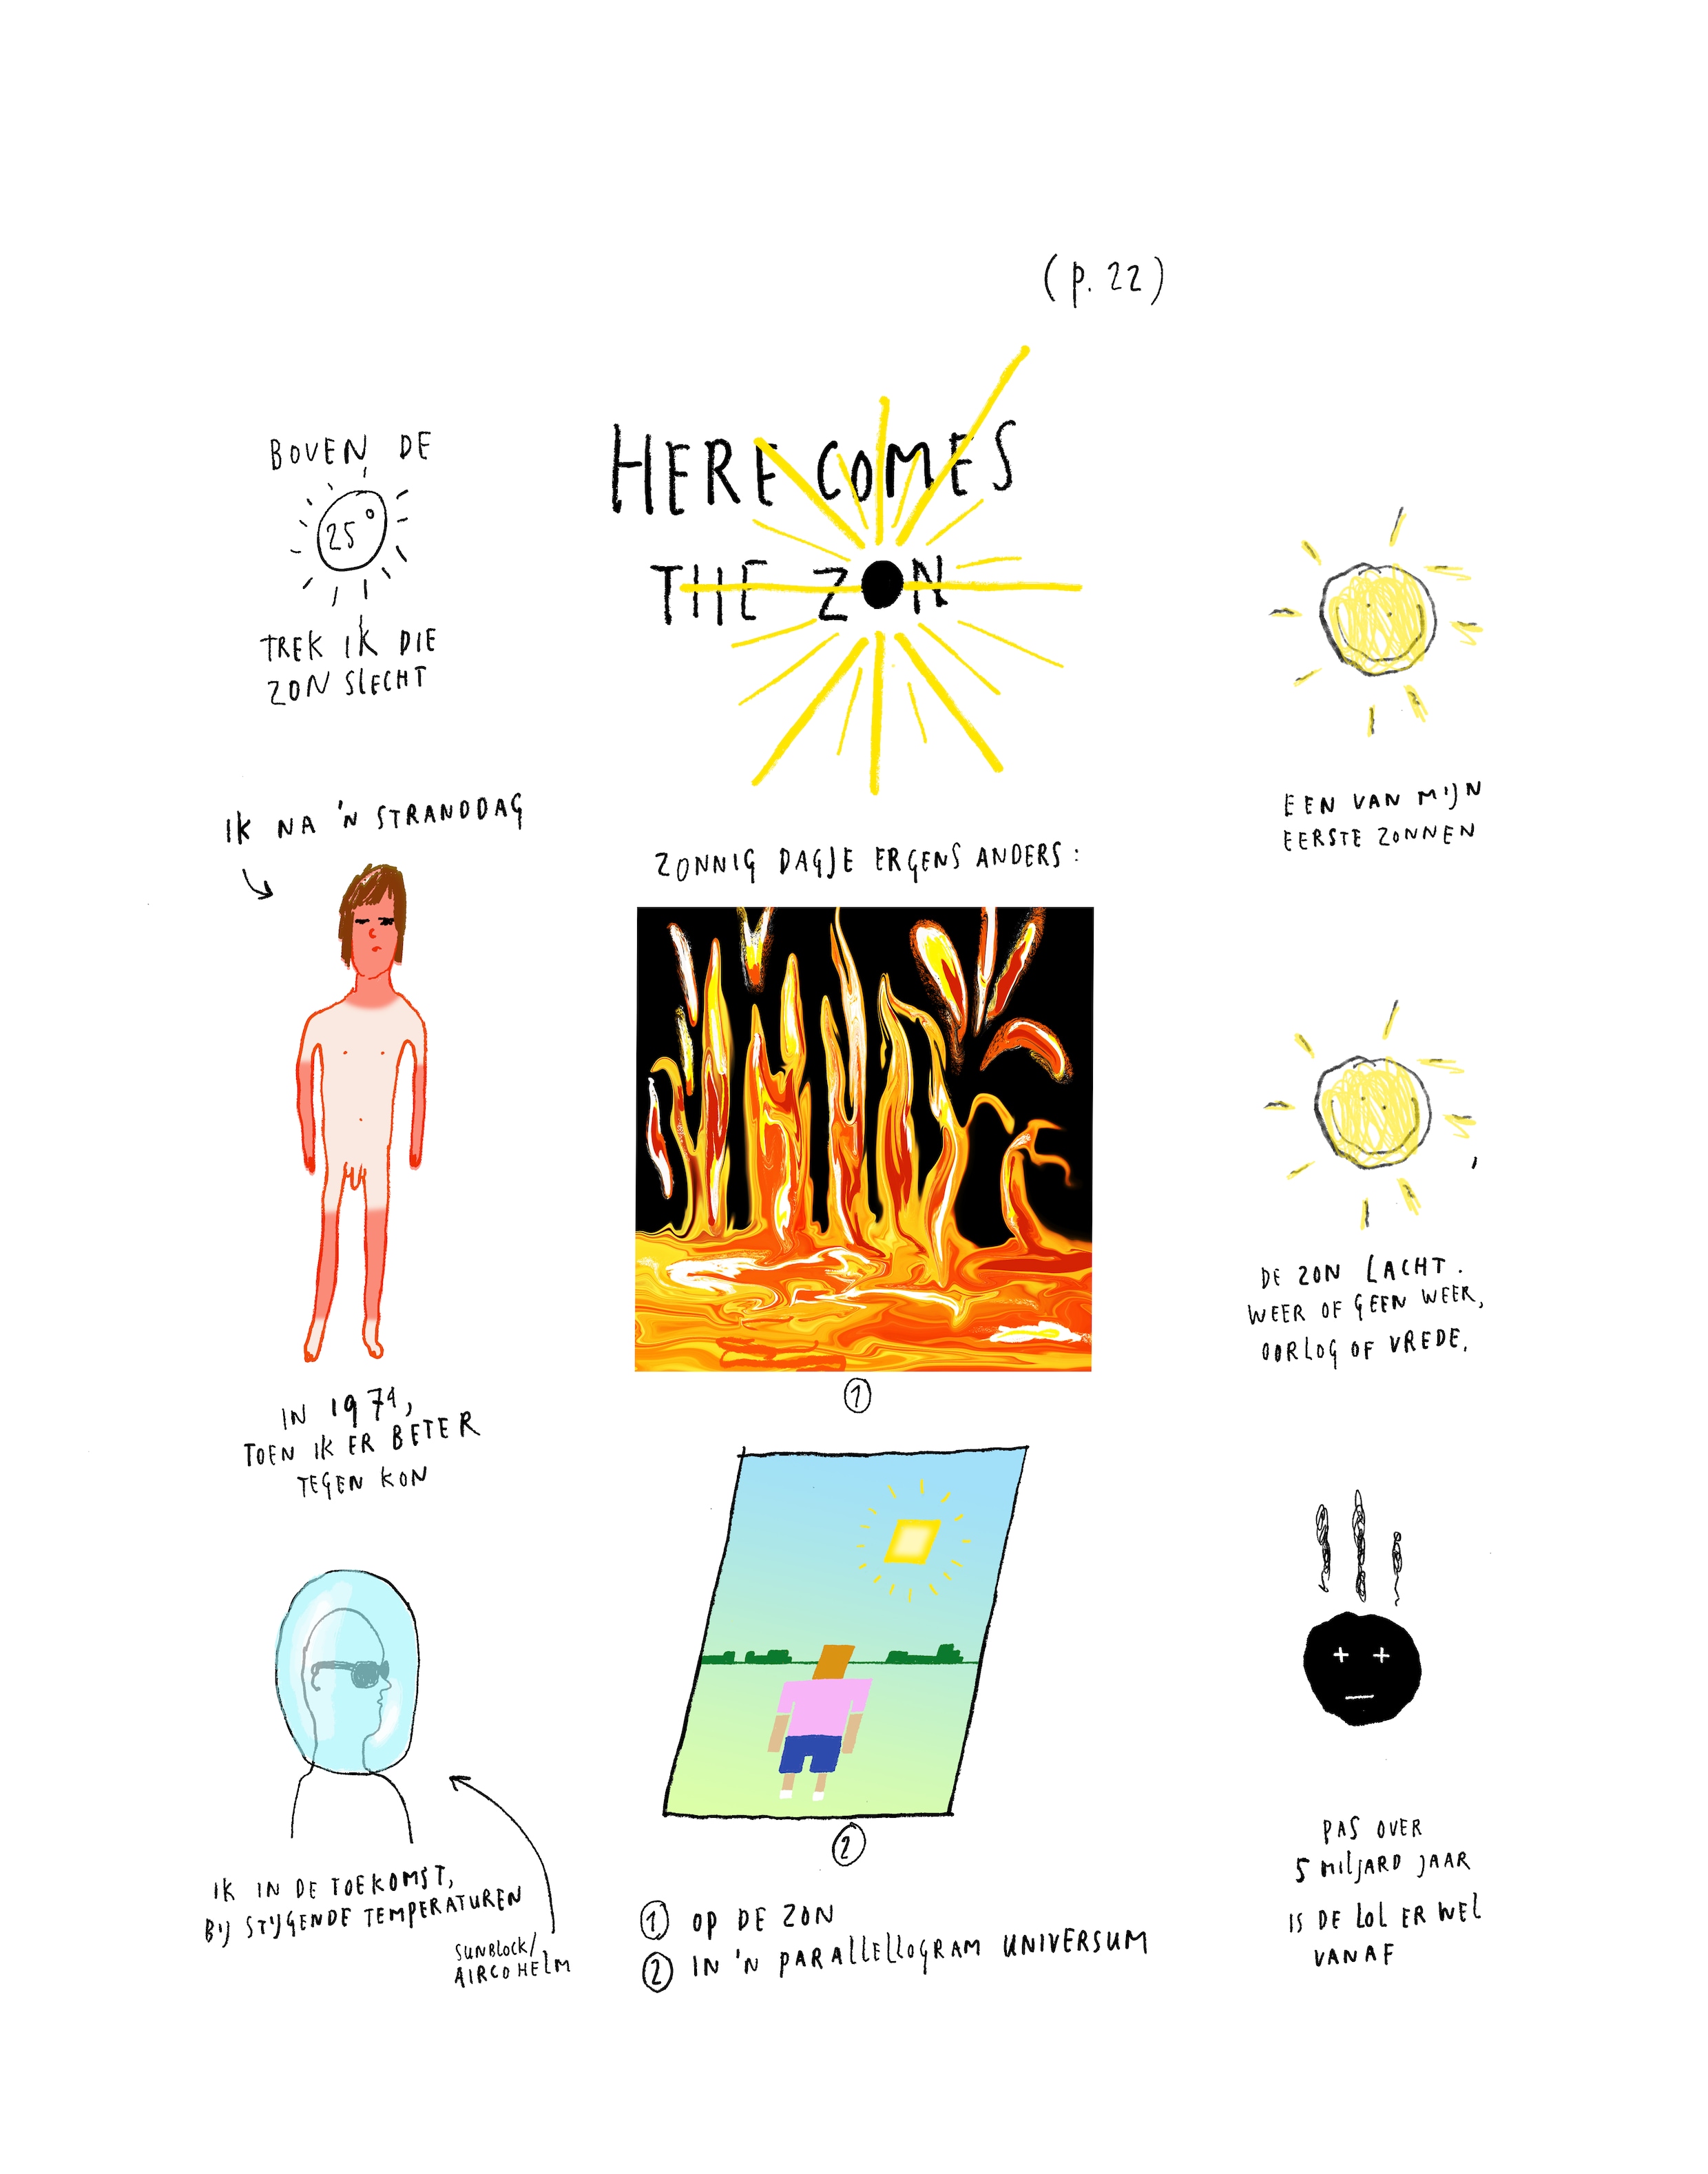 (p. 22)
HERE COMES
THE ZON
BOVEN DE
25°
TREK IK DIE
ZON SLECHT
IK NA 'N STRANDDAG
IN 1974,
TOEN IK ER BETER
TEGEN KON
IK IN DE TOEKOMST,
BIJ STIJGENDE TEMPERATUREN
SUNBLOCK/
AIRCOHELM
ZONNIG DAGJE ERGENS ANDERS:
1
2
1 OP DE ZON
2 IN 'N PARALLELLOGRAM UNIVERSUM
EEN VAN MIJN
EERSTE ZONNEN
DE ZON LACHT.
WEER OF GEEN WEER,
OORLOG OF VREDE.
PAS OVER
5 MILJARD JAAR
IS DE LOL ER WEL
VANAF